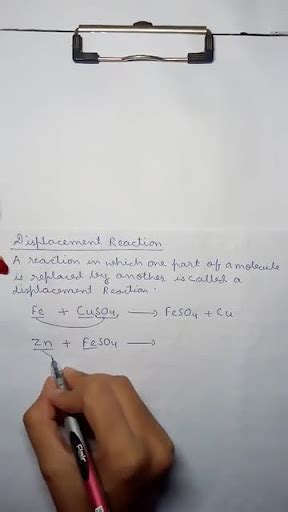 Displacement Reaction
A reaction in which one part of a molecule
is replaced by another is called a
displacement Reaction.
Fe + CuSO4 ⟶ FeSO4 + Cu
Zn + FeSO4 ⟶